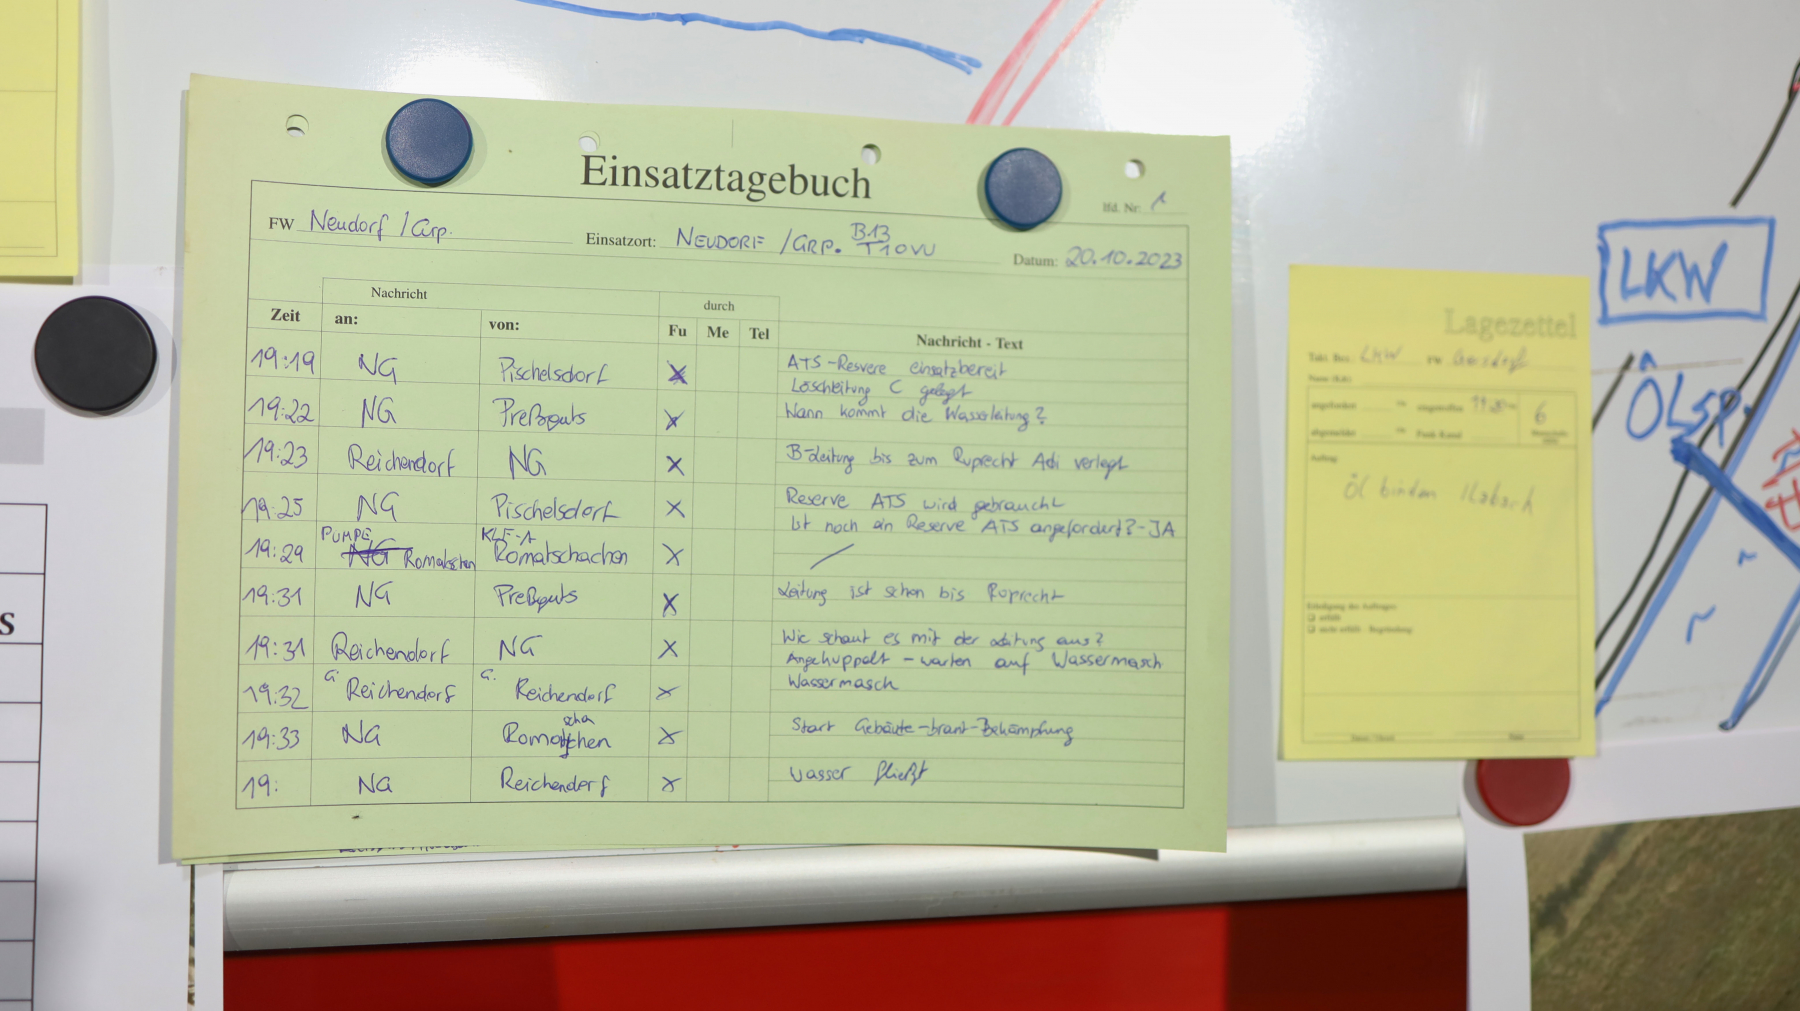 Einsatztagebuch
lfd. Nr. 1
FW Neudorf /Grp.
Einsatzort: NEUDORF /GRP. B13 T10VU
Datum: 20.10.2023
Nachricht durch
Zeit an: von: Fu Me Tel Nachricht - Text
19:19 NG Pischelsdorf X ATS-Resvere einsatzbereit
Löschleitung C gelegt
19:22 NG Preßguts X Wann kommt die Wasserleitung?
19:23 Reichendorf NG X B-Leitung bis zum Ruprecht Adi verlegt
19:25 NG Pischelsdorf X Reserve ATS wird gebraucht
Ist noch ein Reserve ATS angefordert?-JA
PUMPE KLF-A
19:29 NG Romatschen Romatschachen X
19:31 NG Preßguts X Leitung ist schon bis Ruprecht
19:31 Reichendorf NG X Wie schaut es mit der Leitung aus?
Angekuppelt - warten auf Wassermasch
19:32 G. Reichendorf G. Reichendorf X Wassermasch
19:33 NG Romatschachen X Start Gebäute-brant-Bekämpfung
19: NG Reichendorf X Wasser fließt
Lagezettel
LKW
6
Öl binden
LKW
ÖLSP.
S